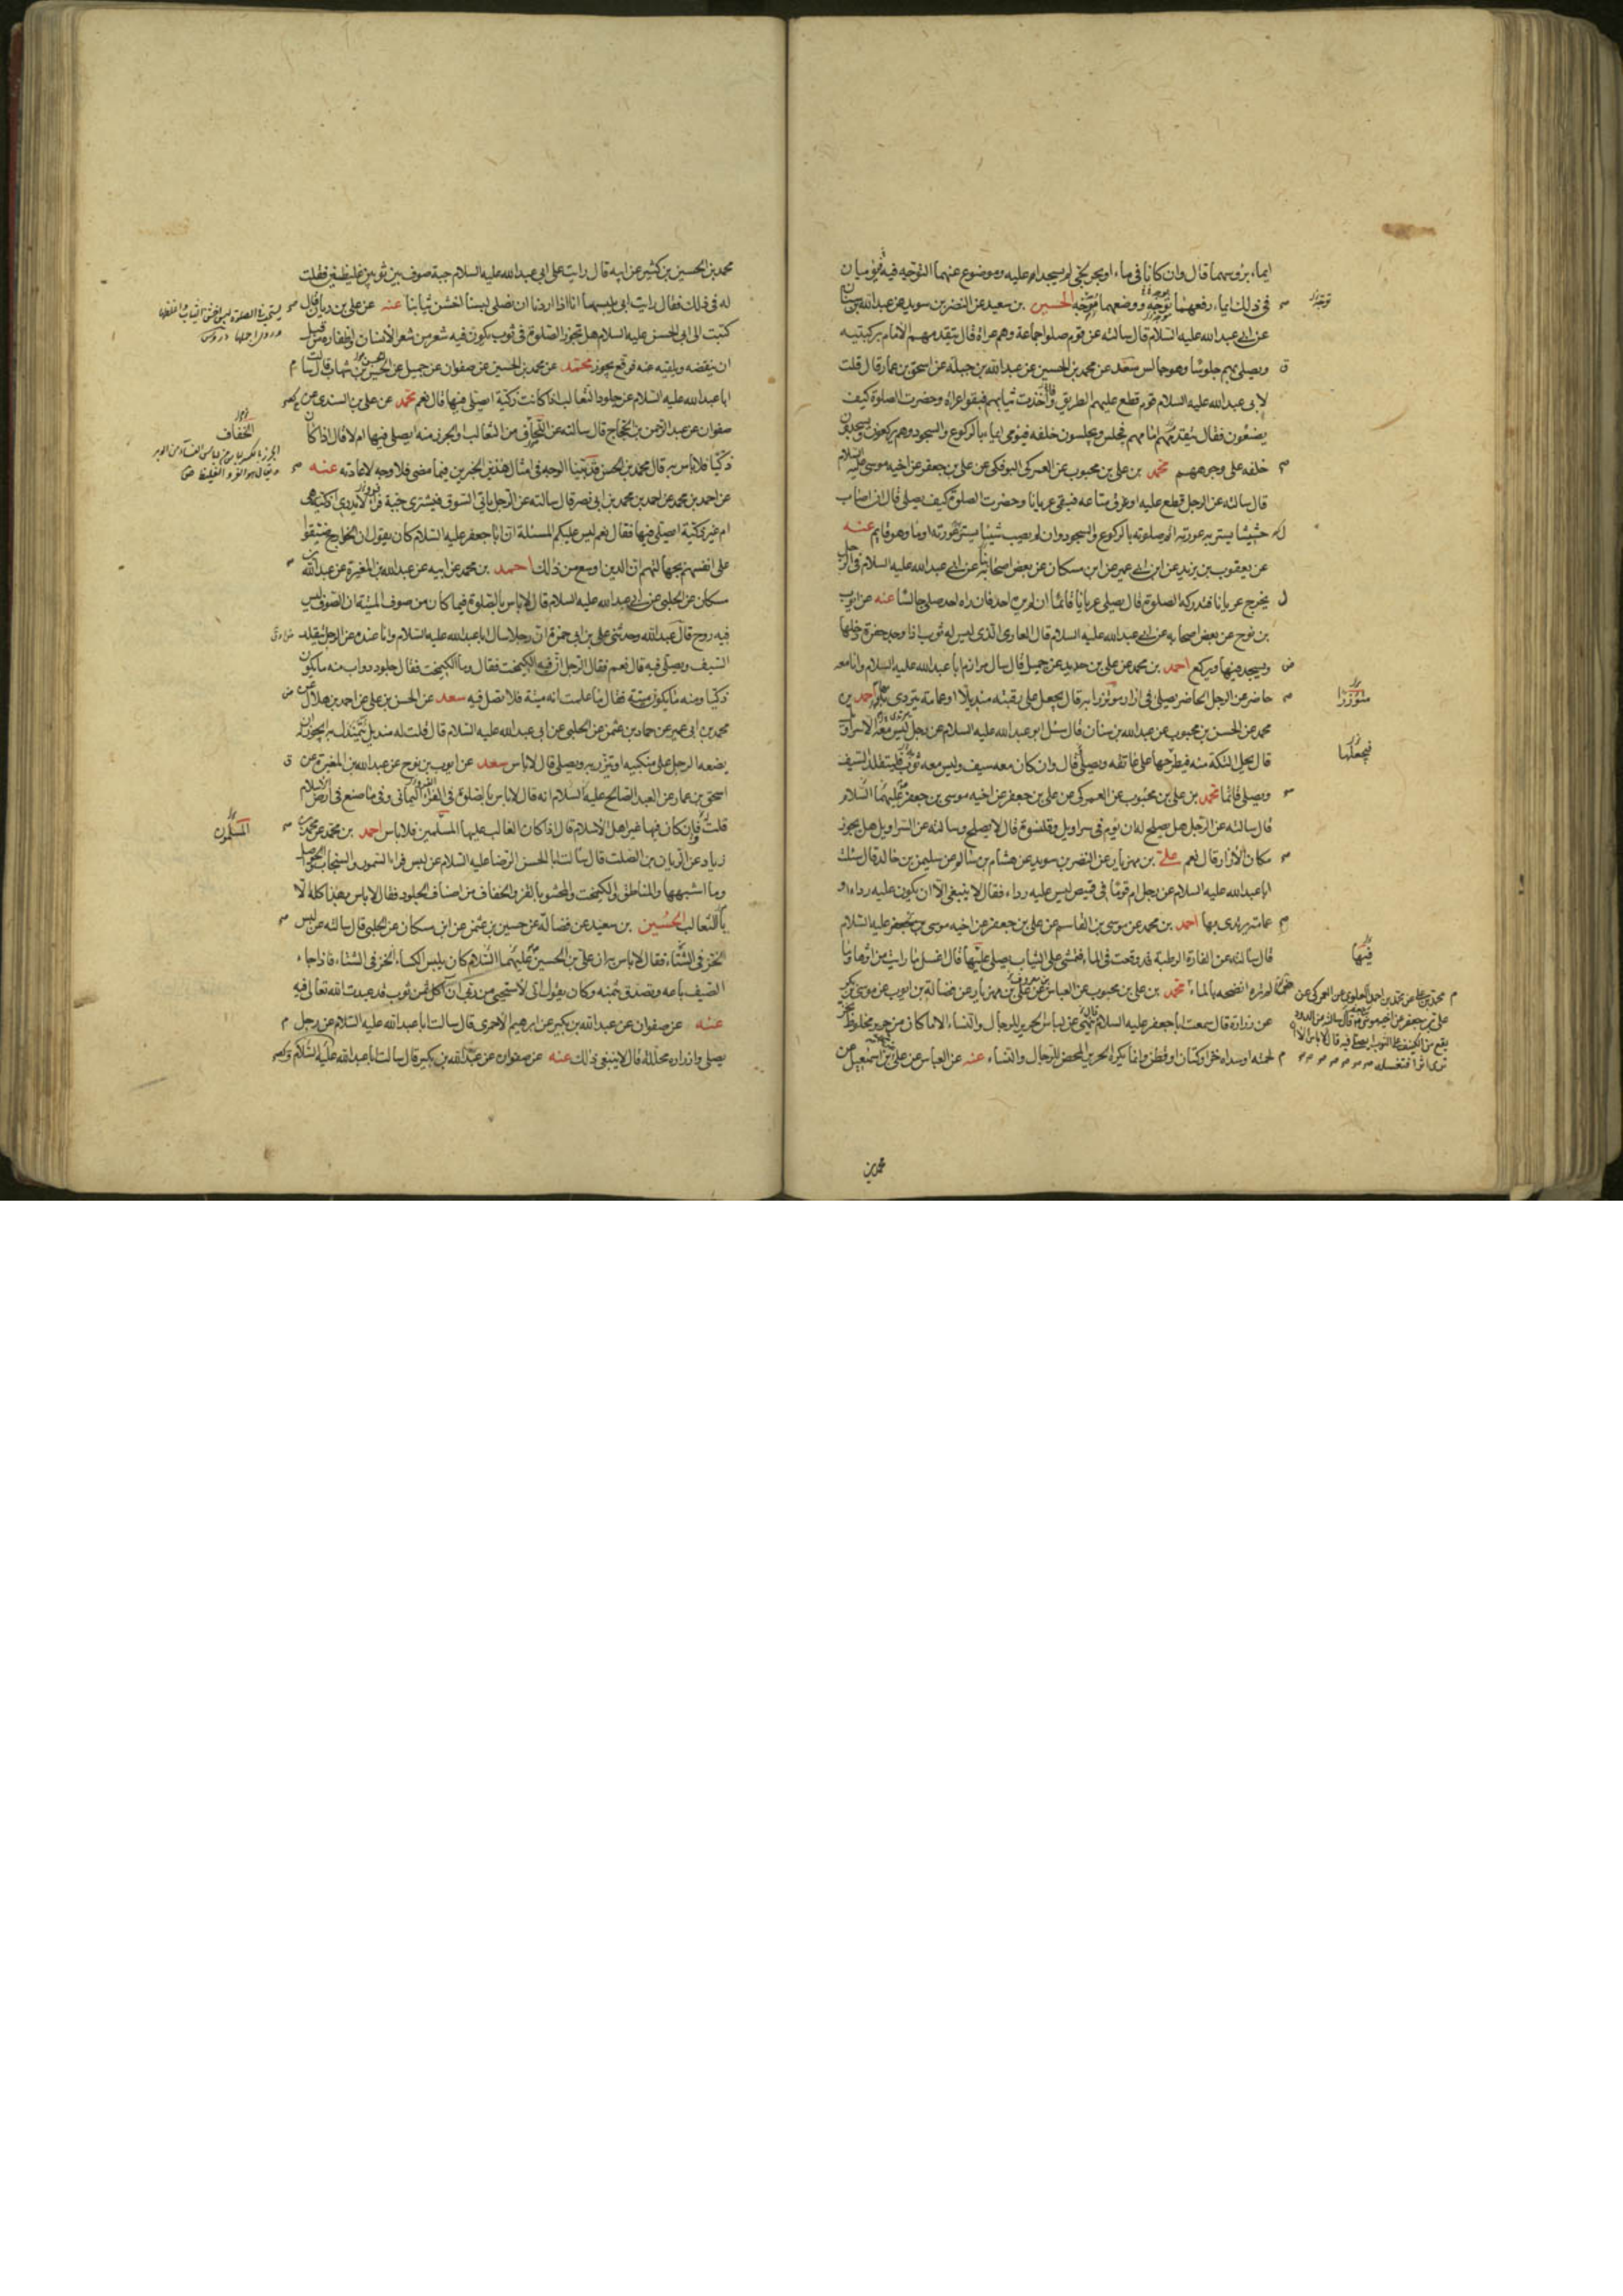 ايماء برؤسهما قال وان كانا في ماء او بحر لجي لم يسجدا عليه وموضوع عنهما التوجه فيه فيوميان
في ذلك ايماء رفعهما توجه ووضعهما توجه الحسين بن سعيد عن النضر بن سويد عن عبدالله بن سنان
عن ابي عبدالله عليه السلام قال سالته عن قوم صلوا جماعة وهم عراة قال يتقدمهم الامام بركبتيه
ويصلي بهم جلوسا وهو جالس سعد عن محمد بن الحسين عن عبدالله بن جبلة عن اسحق بن عمار قال قلت
لابي عبدالله عليه السلام قوم قطع عليهم الطريق واخذت ثيابهم فبقوا عراة وحضرت الصلوة كيف
يصنعون فقال يتقدمهم امامهم فيجلس ويجلسون خلفه فيومي ايماء بالركوع والسجود وهم يركعون ويسجدون
خلفه على وجوههم محمد بن علي بن محبوب عن العمركي البوفكي عن علي بن جعفر عن اخيه موسى عليه السلام
قال سالته عن الرجل قطع عليه او غرق متاعه فبقي عريانا وحضرت الصلوة كيف يصلي قال ان اصاب
حشيشا يستر به عورته اتم صلوته بالركوع والسجود وان لم يصب شيئا يستر عورته اوما وهو قايم عنه
عن يعقوب بن يزيد عن ابن ابي عمير عن ابن مسكان عن بعض اصحابنا عن ابي عبدالله عليه السلام في الرجل
يخرج عريانا فتدركه الصلوة قال يصلي عريانا قائما ان لم يره احد فان راه احد صلى جالسا عنه عن ايوب
بن نوح عن بعض اصحابه عن ابي عبدالله عليه السلام قال العاري الذي ليس له ثوب اذا وجد حفرة دخلها
ويسجد فيها ويركع احمد بن محمد عن علي بن حديد عن جميل قال سال مرازم ابا عبدالله عليه السلام وانا معه
حاضر عن الرجل الحاضر يصلي في ازار مؤتزرا به قال يجعل على رقبته منديلا او عمامة يتردى به احمد بن
محمد عن الحسن بن محبوب عن عبدالله بن سنان قال سئل ابو عبدالله عليه السلام عن رجل ليس معه الا سراويل
قال يحل التكة منه فيطرحها على عاتقه ويصلي قال وان كان معه سيف وليس معه ثوب فليتقلد السيف
ويصلي قائما محمد بن علي بن محبوب عن العمركي عن علي بن جعفر عن اخيه موسى بن جعفر عليهما السلام
قال سالته عن الرجل هل يصلح له ان يؤم في سراويل وقلنسوة قال لا يصلح وسالته عن السراويل هل يجوز
مكان الازار قال نعم علي بن مهزيار عن النضر بن سويد عن هشام بن سالم عن سليمن بن خالد قال سئلت
ابا عبدالله عليه السلام عن رجل ام قوما في قميص ليس عليه رداء فقال لا ينبغي الا ان يكون عليه رداء او
عمامة يرتدي بها احمد بن محمد عن موسى بن القاسم عن علي بن جعفر عن اخيه موسى بن جعفر عليه السلام
قال سالته عن الفارة الرطبة قد وقعت في الماء فتمشي على الثياب يصلي عليها قال اغسل ما رايت من اثرها وما
لم تره انضحه بالماء محمد بن علي بن محبوب عن العباس عن علي بن مهزيار عن فضالة بن ايوب عن موسى بن بكر
عن زرارة قال سمعت ابا جعفر عليه السلام ينهى عن لباس الحرير للرجال والنساء الا ما كان من حرير مخلوط بخز
لحمته او سداه خز او كتان او قطن وانما يكره الحرير المحض للرجال والنساء عنه عن العباس عن علي بن اسمعيل عن
توجه
متوزرا
فيجعلها
فيها
محمد بن علي عن محمد بن احمد العلوي عن العمركي عن
علي بن جعفر عن اخيه موسى قال سالته عن الدود
يقع من الكنيف على الثوب ايصلي فيه قال لا باس الا ان
ترى اثرا فتغسله
محمد بن
محمد بن الحسين بن كثير عن ابيه قال رايت على ابي عبدالله عليه السلام جبة صوف بين ثوبين غليظين فقلت
له في ذلك فقال رايت ابي يلبسها انا اذا اردنا ان نصلي لبسنا اخشن ثيابنا عنه عن علي بن ريان قال
كتبت الى ابي الحسن عليه السلام هل تجوز الصلوة في ثوب يكون فيه شعر من شعر الانسان واظفاره من قبل
ان ينفضه ويلقيه عنه فوقع يجوز محمد عن محمد بن الحسين عن صفوان عن جميل عن الحسن بن شهاب قال سالت
ابا عبدالله عليه السلام عن جلود الثعالب اذا كانت ذكية ايصلي فيها قال نعم محمد عن علي بن السندي عن
صفوان عن عبد الرحمن بن الحجاج قال سالته عن اللحاف من الثعالب او الجرز منه ايصلى فيها ام لا قال اذا كان
ذكيا فلا باس به قال محمد بن الحسن قد بينا الوجه في امثال هذين الخبرين فيما مضى فلا وجه لاعادته عنه
عن احمد بن محمد عن احمد بن محمد بن ابي نصر قال سالته عن الرجل ياتي السوق فيشتري جبة فرا لا يدري اذكية هي
ام غير ذكية ايصلي فيها فقال نعم ليس عليكم المسئلة ان ابا جعفر عليه السلام كان يقول ان الخوارج ضيقوا
على انفسهم بجهالتهم ان الدين اوسع من ذلك احمد بن محمد عن ابيه عن عبدالله بن المغيرة عن عبدالله بن
مسكان عن الحلبي عن ابي عبدالله عليه السلام قال لا باس بالصلوة فيما كان من صوف الميتة ان الصوف ليس
فيه روح قال عبدالله وحدثني علي بن ابي حمزة ان رجلا سال ابا عبدالله عليه السلام وانا عنده عن الرجل يتقلد
السيف ويصلي فيه قال نعم فقال الرجل ان فيه الكيمخت فقال وما الكيمخت فقال جلود دواب منه ما يكون
ذكيا ومنه ما يكون ميتة فقال ما علمت انه ميتة فلا تصل فيه سعد عن الحسن بن علي عن احمد بن هلال عن
محمد بن ابي عمير عن حماد بن عثمن عن الحلبي عن ابي عبدالله عليه السلام قال قلت له منديل يتمندل به ايجوز ان
يضعه الرجل على منكبيه او يتزر به ويصلي قال لا باس سعد عن ايوب بن نوح عن عبدالله بن المغيرة عن
اسحق بن عمار عن العبد الصالح عليه السلام انه قال لا باس بالصلوة في الفرا اليماني وفي ما صنع في ارض الاسلام
قلت فان كان فيها غير اهل الاسلام قال اذا كان الغالب عليها المسلمين فلا باس احمد بن محمد عن محمد بن
زياد عن الريان بن الصلت قال سالت ابا الحسن الرضا عليه السلام عن لبس فراء السمور والسنجاب والحواصل
وما اشبهها والمناطق والكيمخت والمحشو بالقز والخفاف من اصناف الجلود فقال لا باس بهذا كله الا
بالثعالب الحسين بن سعيد عن فضالة عن حسين بن عثمن عن ابن مسكان عن الحلبي قال سالته عن لبس
الخز في الشتاء فقال لا باس به ان علي بن الحسين عليهما السلام كان يلبس الكساء الخز في الشتاء فاذا جاء
الصيف باعه وتصدق بثمنه وكان يقول اني لاستحيي من ربي ان آكل ثمن ثوب قد عبدت الله تعالى فيه
عنه عن صفوان عن عبدالله بن بكير عن ابرهيم الاحمري قال سالت ابا عبدالله عليه السلام عن رجل
يصلي وازراره محللة قال لا ينبغي ذلك عنه عن صفوان عن عبدالله بن بكير قال سالت ابا عبدالله عليه السلام
الخفاف
المسلمون